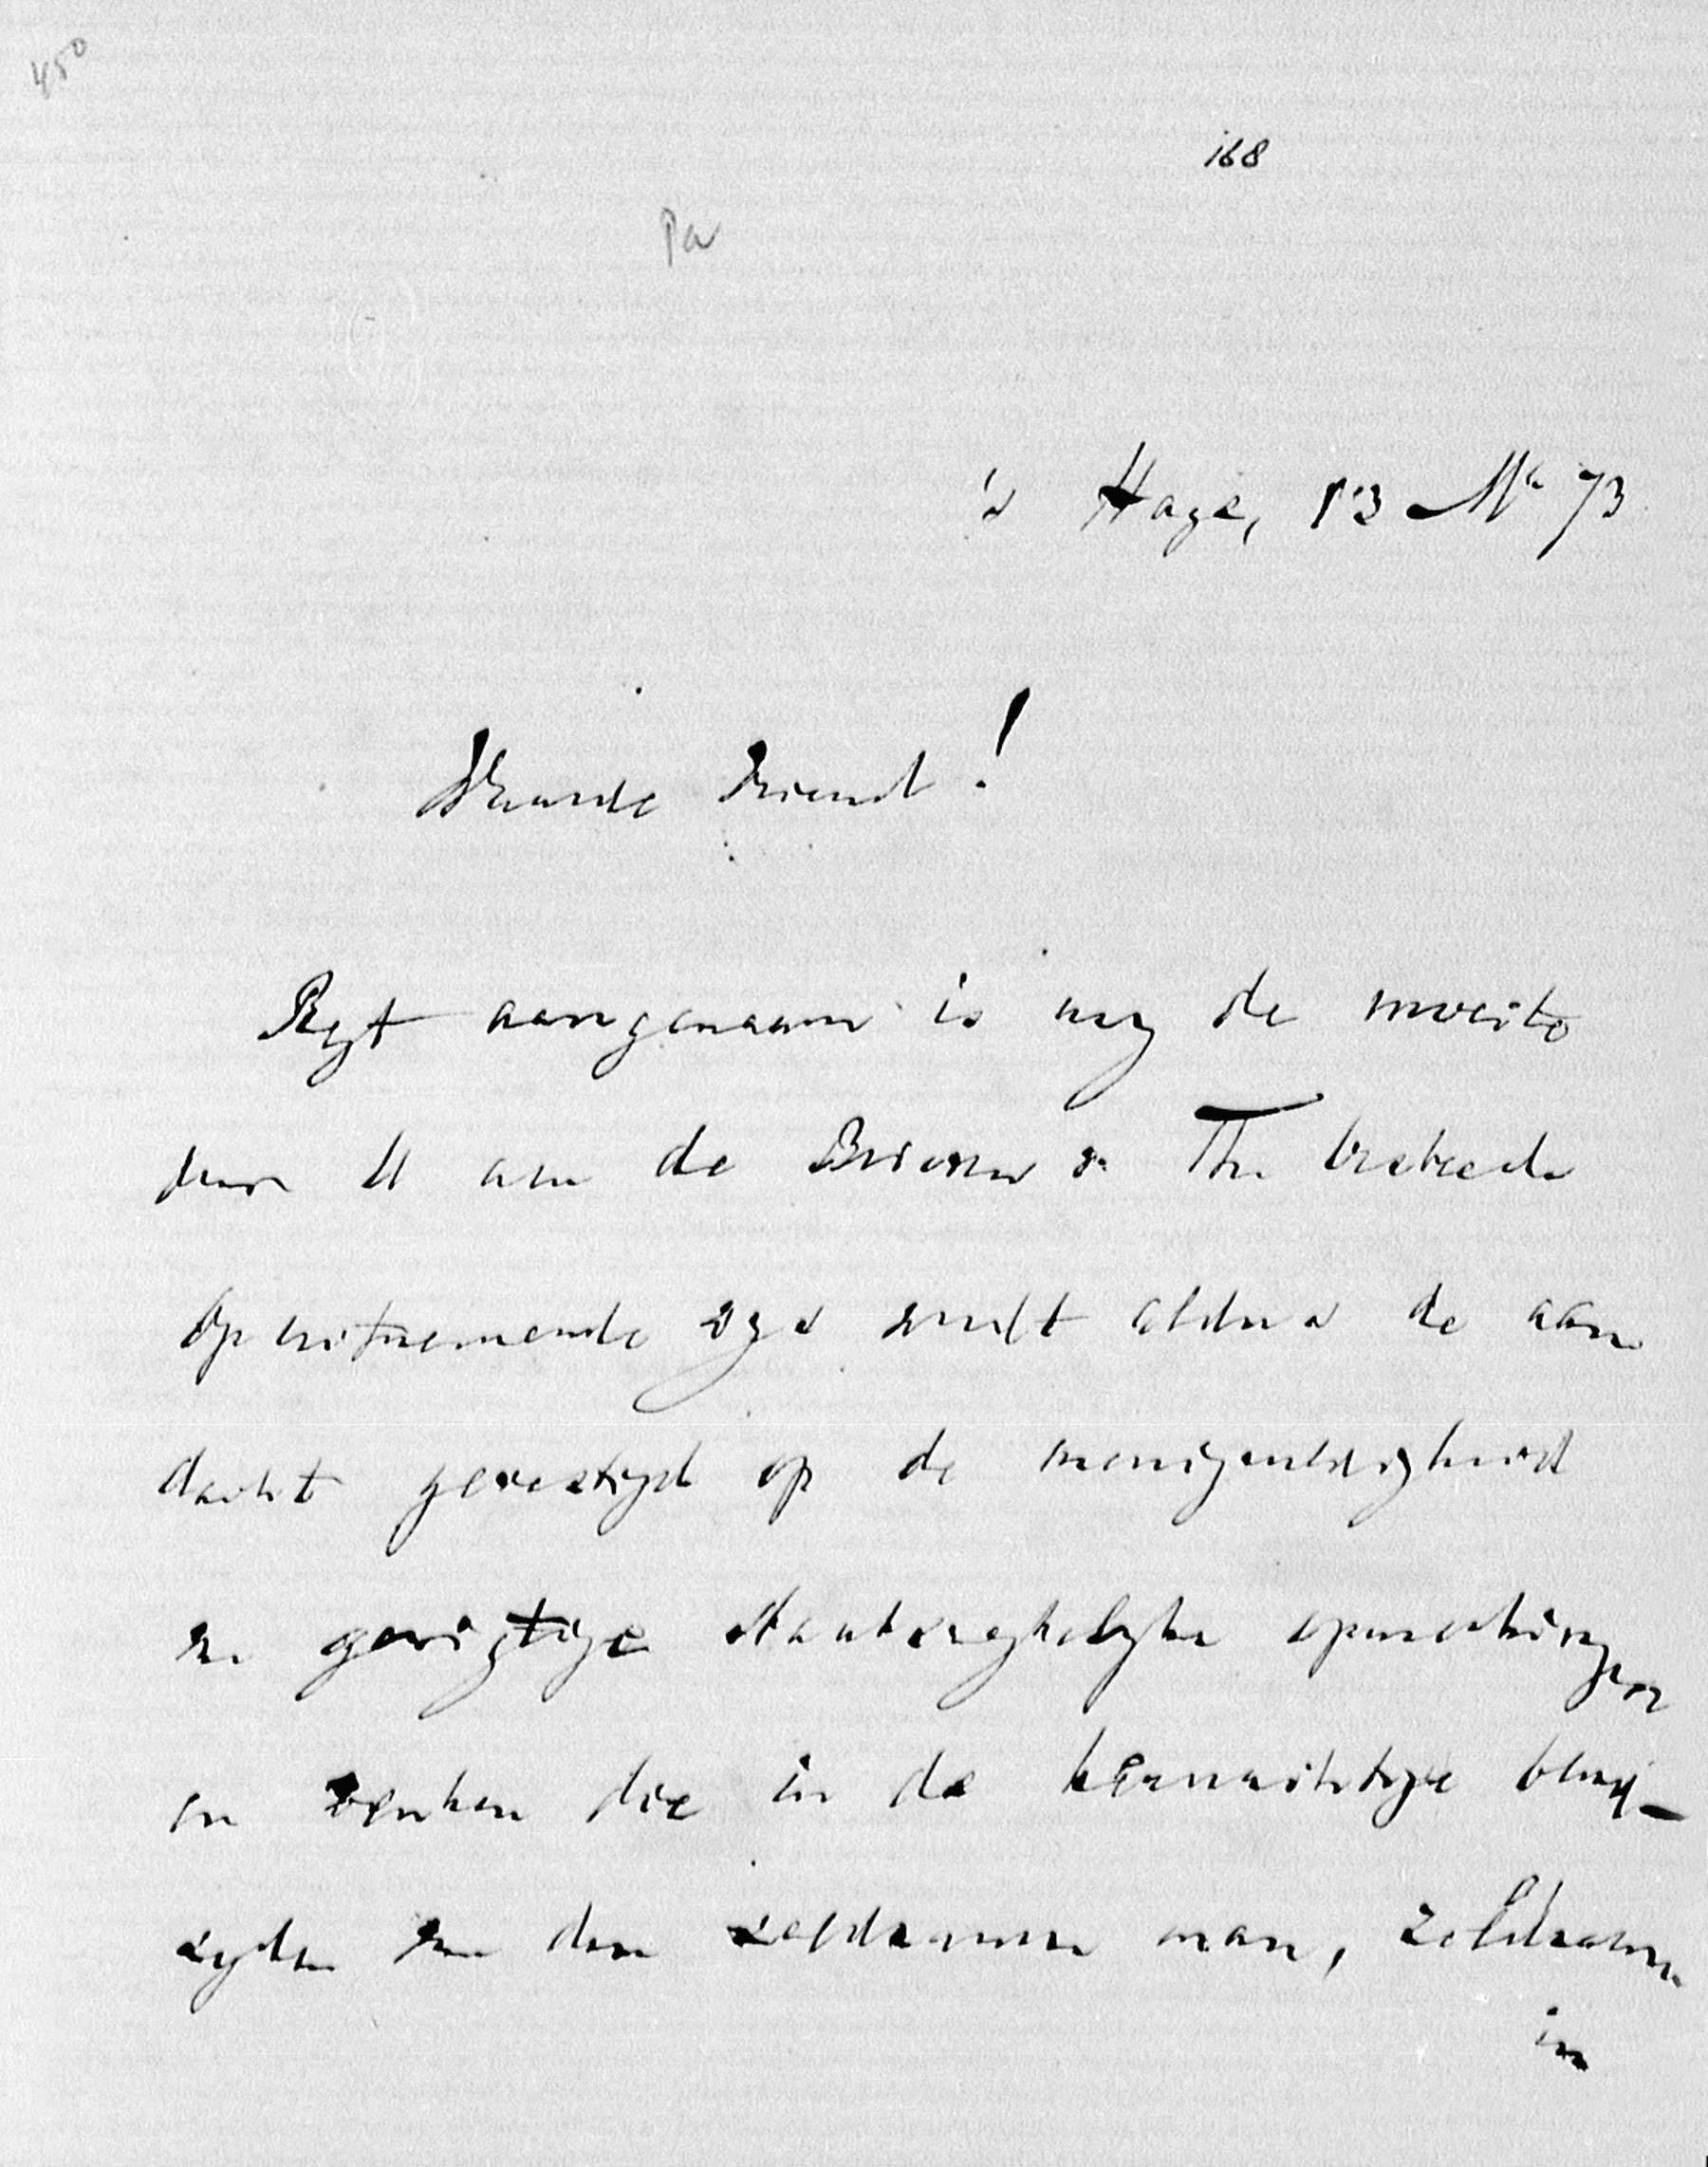 450
168
Pa
's Hage, 13 Mt 73
Waarde Vriend!
Regt aangenaam is my de moeite
door U aan de Brieven v. Th. besteed.
Op uitnemende wys wordt aldus de aan
dacht gevestigd op de menigvuldigheid
en gewigtige staatsregtelyke opmerkingen
en wenken die in de kernachtige blad-
zyden van den zeldzamen man, zeldzaam
in